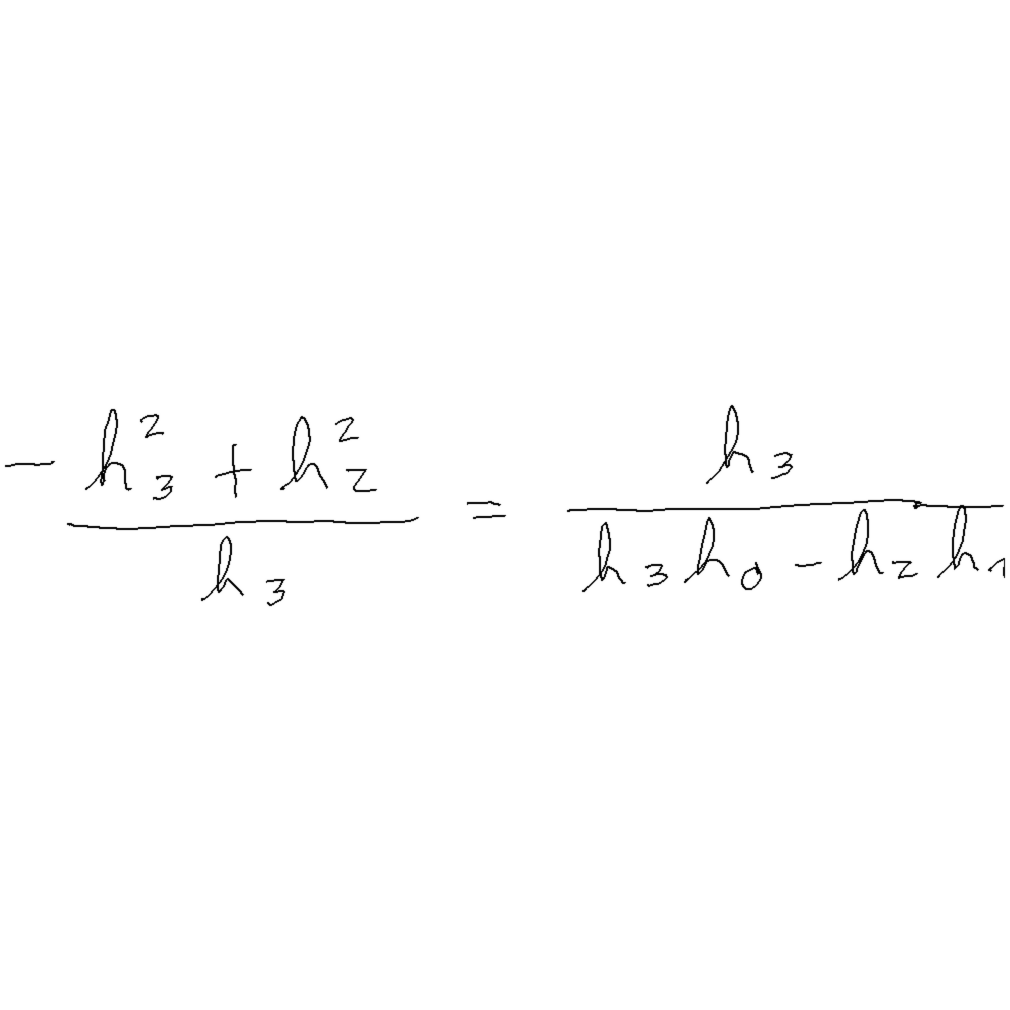 $-\frac{h_3^2 + h_2^2}{h_3} = \frac{h_3}{h_3 h_0 - h_2 h_1}$